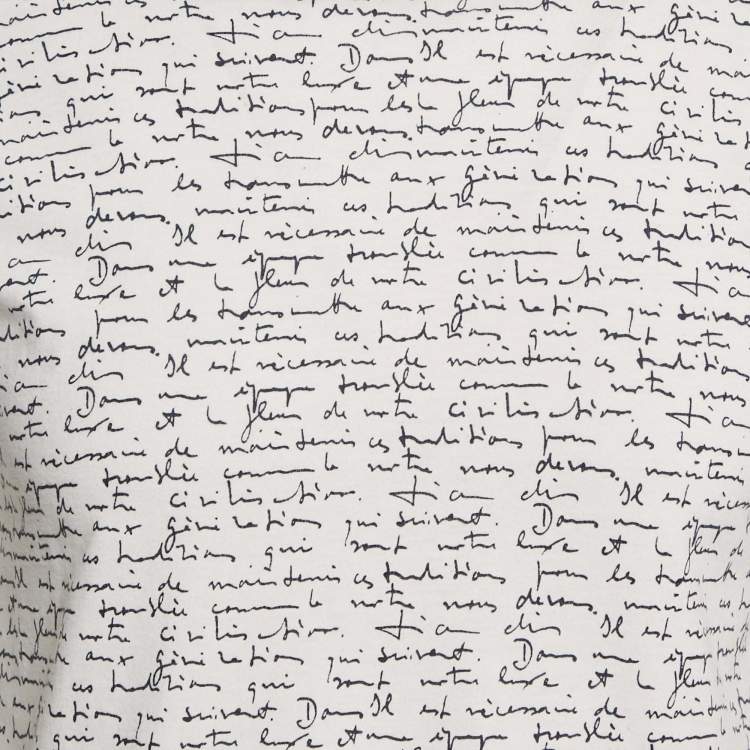 maintenir ces
comme la notre nous devons transmettre aux géné
civilisation. maintenir ces traditions
générations qui suivent. Dans Il est nécessaire de mai
qui sont notre luxe et une époque troublée com
maintenir ces traditions pour les la fleur de notre civilis
comme la notre nous devons transmettre aux générat
civilisation. maintenir ces traditions
pour les transmettre aux générations qui suivent
nous devons maintenir ces traditions qui sont notre
Il est nécessaire de maintenir ces traditions
Dans une époque troublée comme la notre nous
notre luxe et la fleur de notre civilisation.
pour les transmettre aux générations qui suivent
nous devons maintenir ces traditions qui sont notre
Il est nécessaire de maintenir ces traditions
Dans une époque troublée comme la notre nous
notre luxe et la fleur de notre civilisation.
est nécessaire de maintenir ces traditions pour les transm
époque troublée comme la notre nous devons maintenir
de notre civilisation. Il est nécess
aux générations qui suivent. Dans une époque
maintenir ces traditions qui sont notre luxe et la fleur de
est nécessaire de maintenir ces traditions pour les transmettre
et une époque troublée comme la notre nous devons maintenir ces
fleur de notre civilisation. Il est
transmettre aux générations qui suivent. Dans une époque
maintenir ces traditions qui sont notre luxe et la fleur
aux générations qui suivent. Dans Il est nécessaire de maintenir
qui sont notre luxe et une époque troublée comme